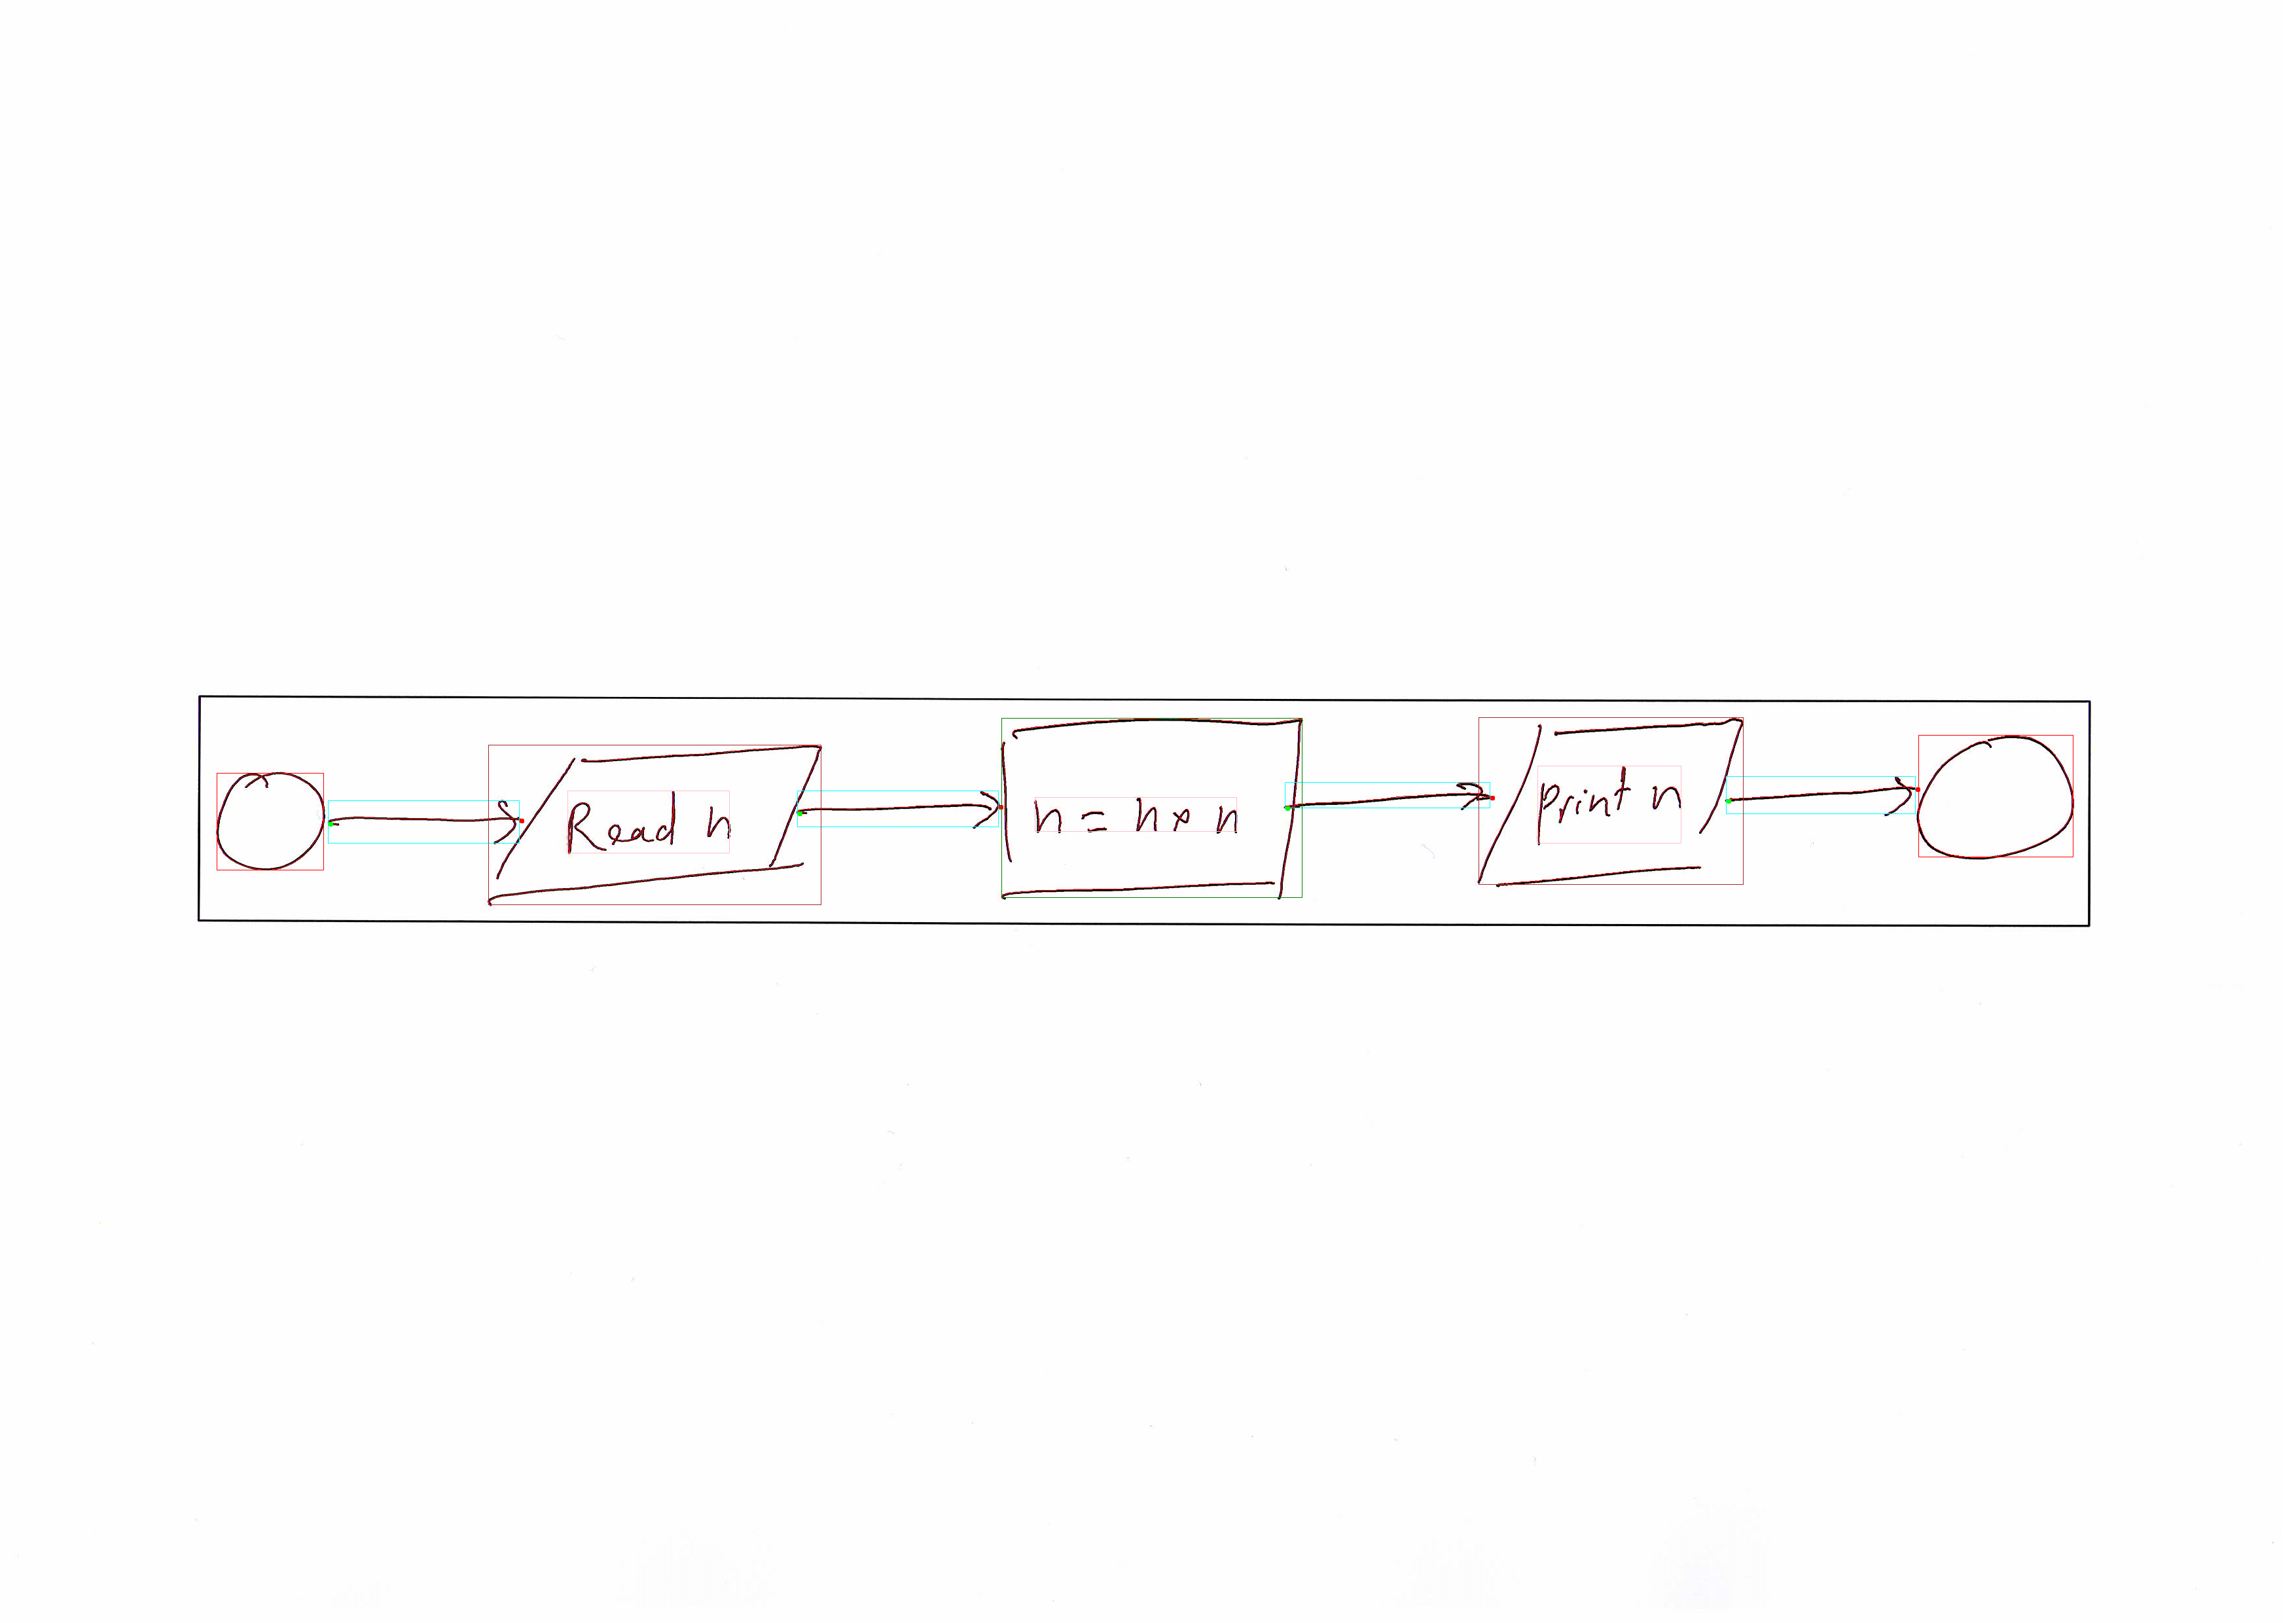 Read n
n = n × n
Print n